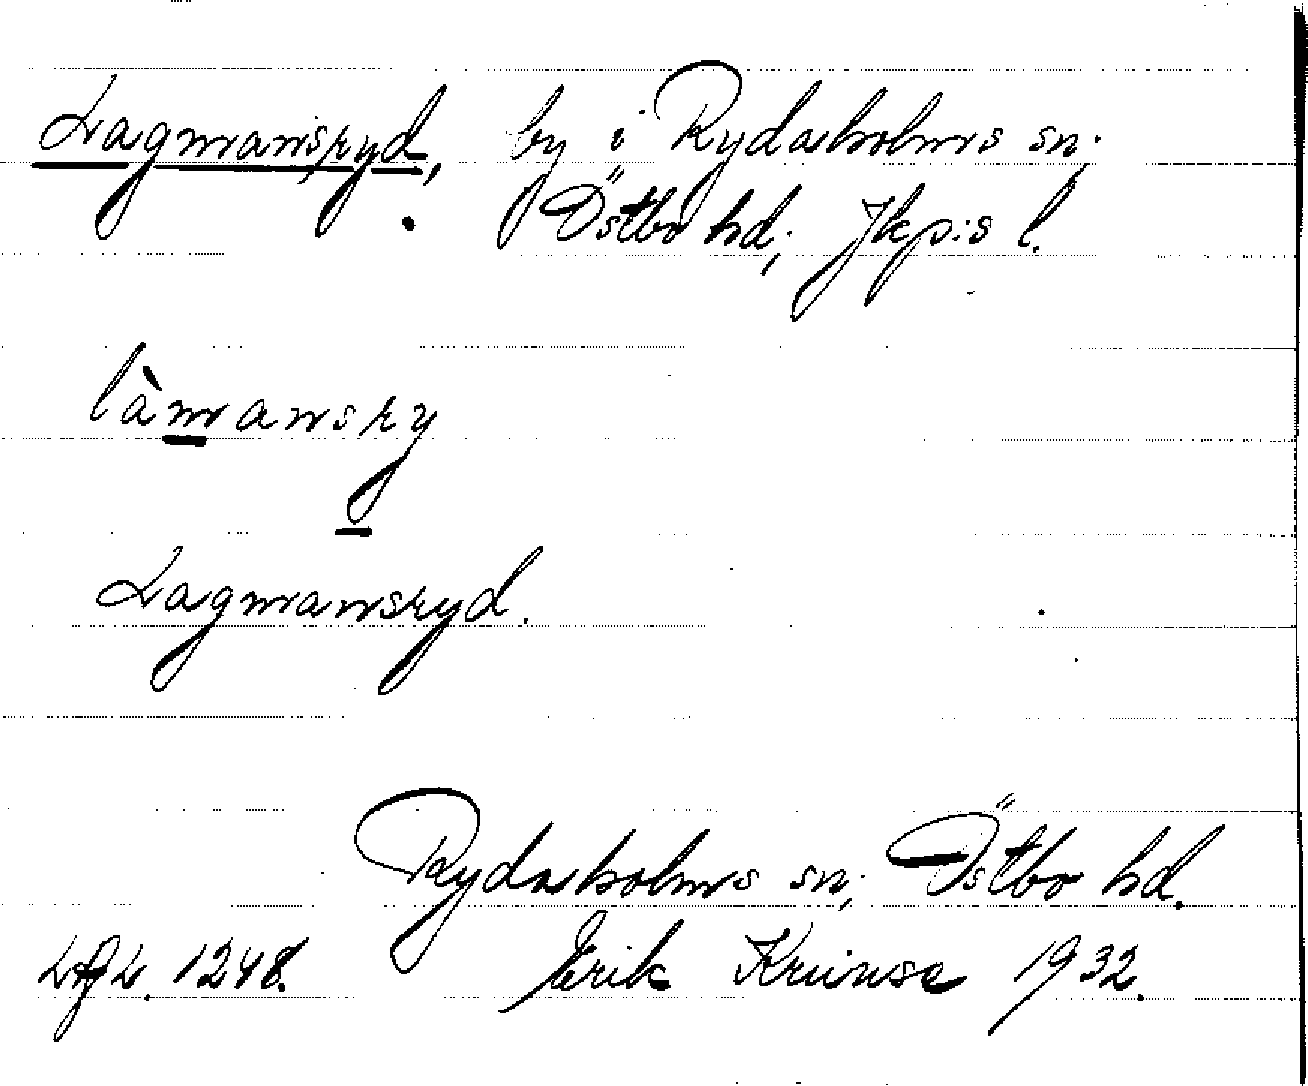 Lagmansryd, by i Rydaholms sn.,
Östbo hd., Jkp:s l.
làmansry
Lagmansryd.
Rydaholms sn., Östbo hd.
1248. Erik 1932.